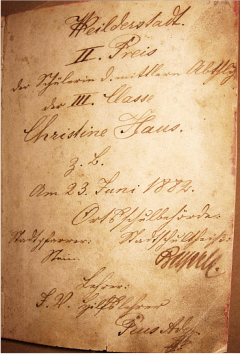 Weilderstadt.
II. Preis
der Schülerin d. mittleren Abthlg.
der III. Classe
Christine Haus.
z. B.
Am 23. Juni 1882.
Ortsschulbehörde:
Stadtpfarrer: Stadtschultheiß:
Stein. Beyerle.
Lehrer:
Hilfslehrer